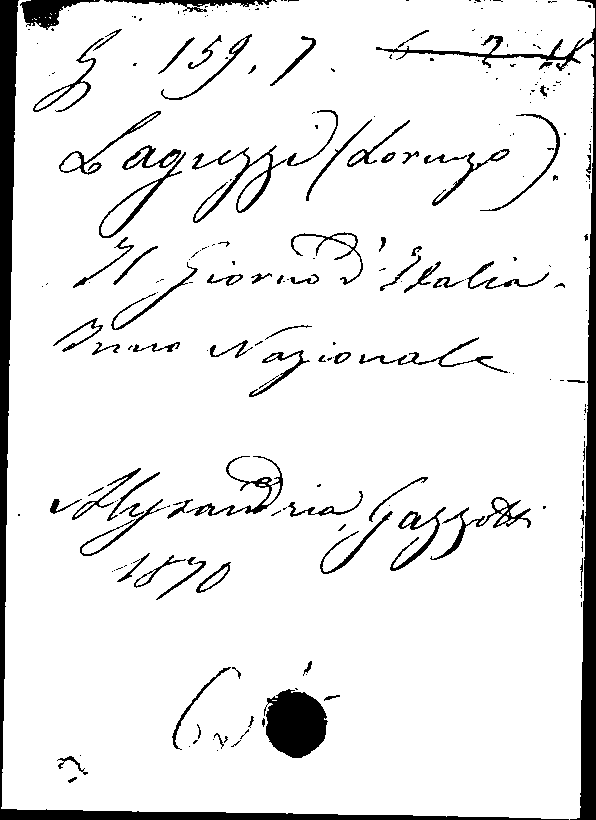 G. 159. 7. 6. 2. 18
Laguzzi (Lorenzo).
Il Giorno d'Italia.
Inno Nazionale
Alessandria, Gazzotti
1870